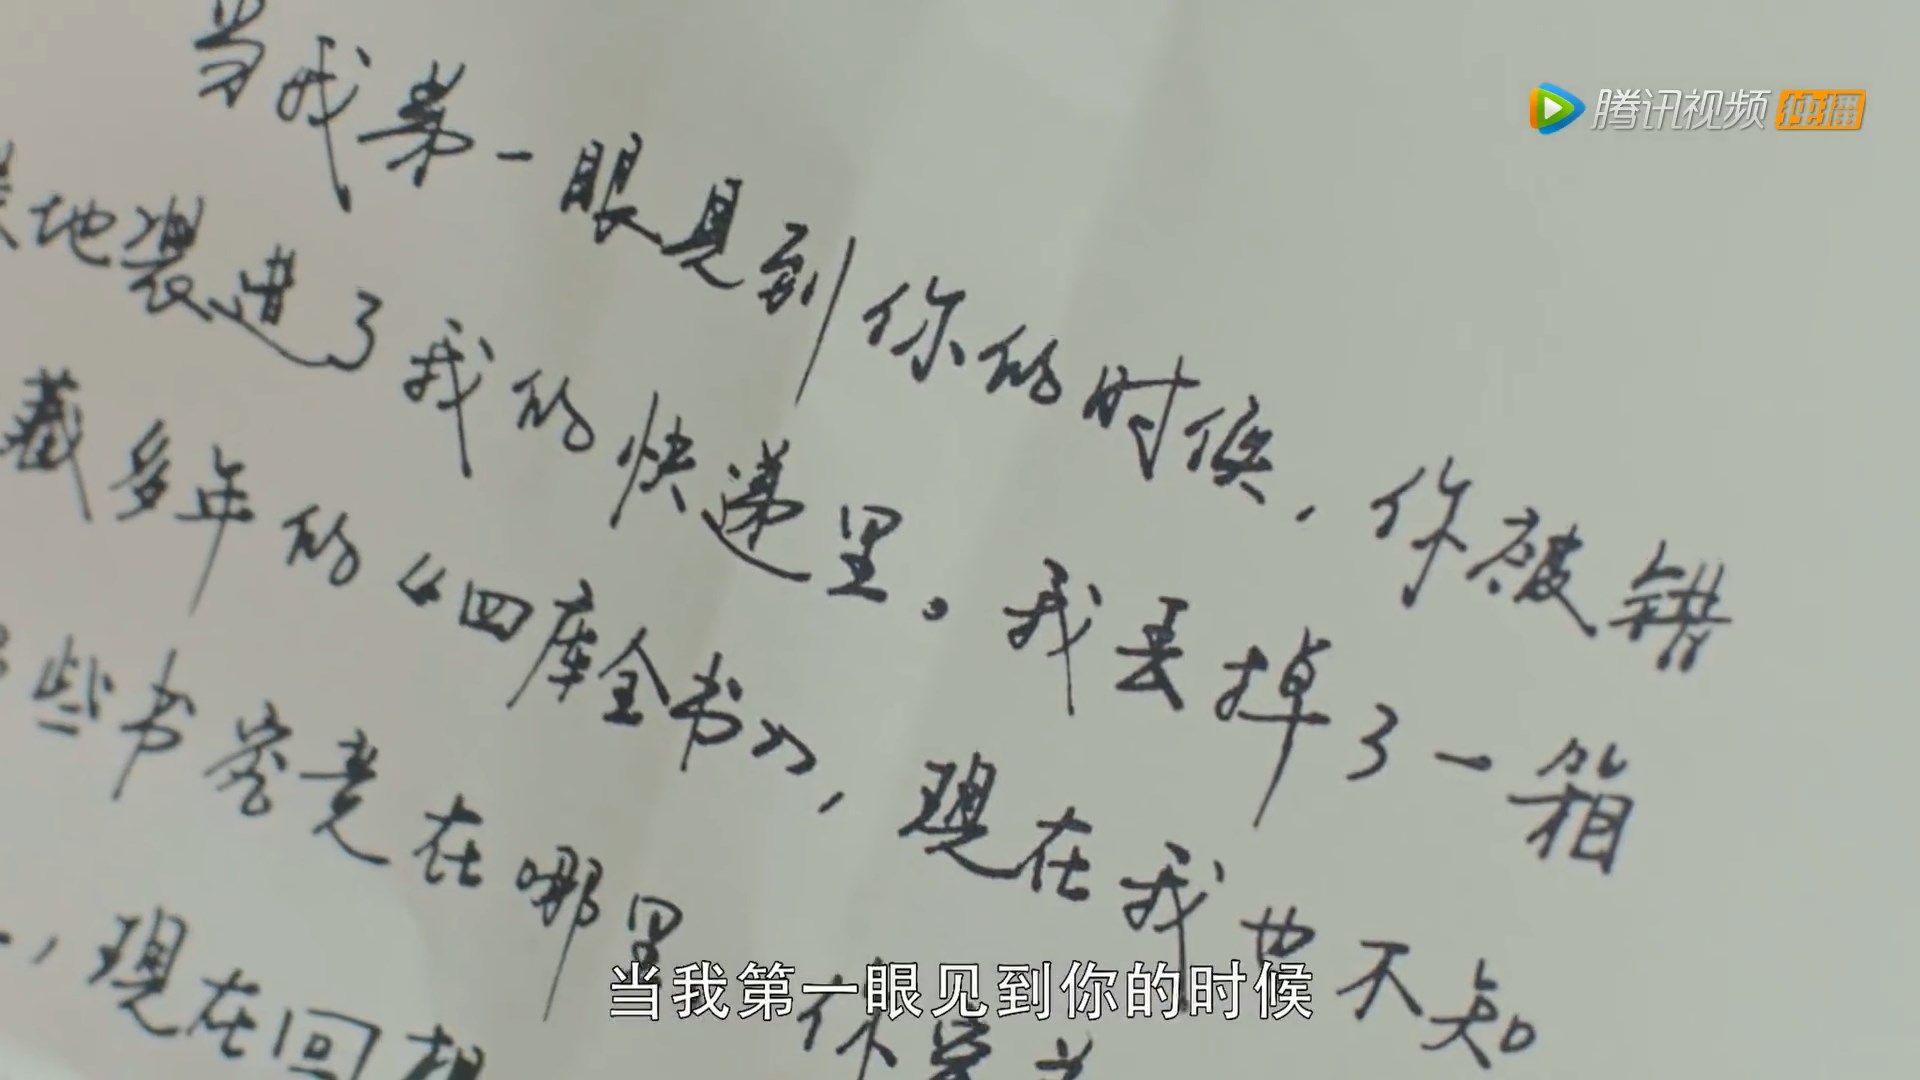 腾讯视频 独播
当我第一眼見到你的时候，你被错
地装進了我的快递里。我丢掉了一箱
藏多年的《四庫全书》，現在我也不知
些书究竟在哪里
，現在回想
当我第一眼见到你的时候